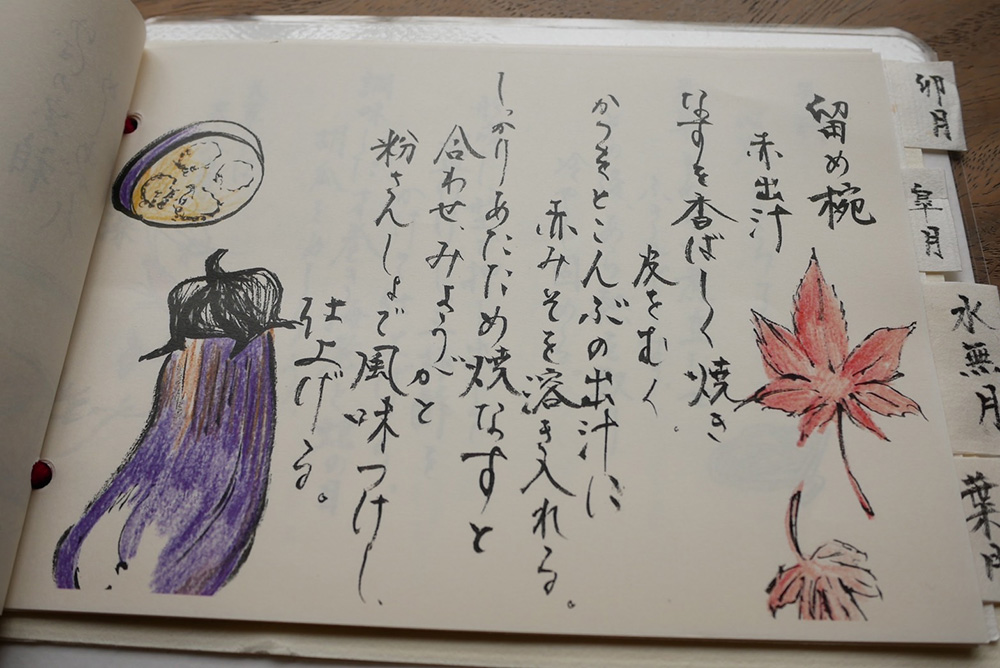 留め椀
赤出汁
なすを香ばしく焼き
皮をむく
かつをとこんぶの出汁に
赤みそを溶き入れる。
しっかりあたため焼なすと
合わせ、みょうがと
粉さんしょで風味つけし、
仕上げる。
卯月
皐月
水無月
葉月